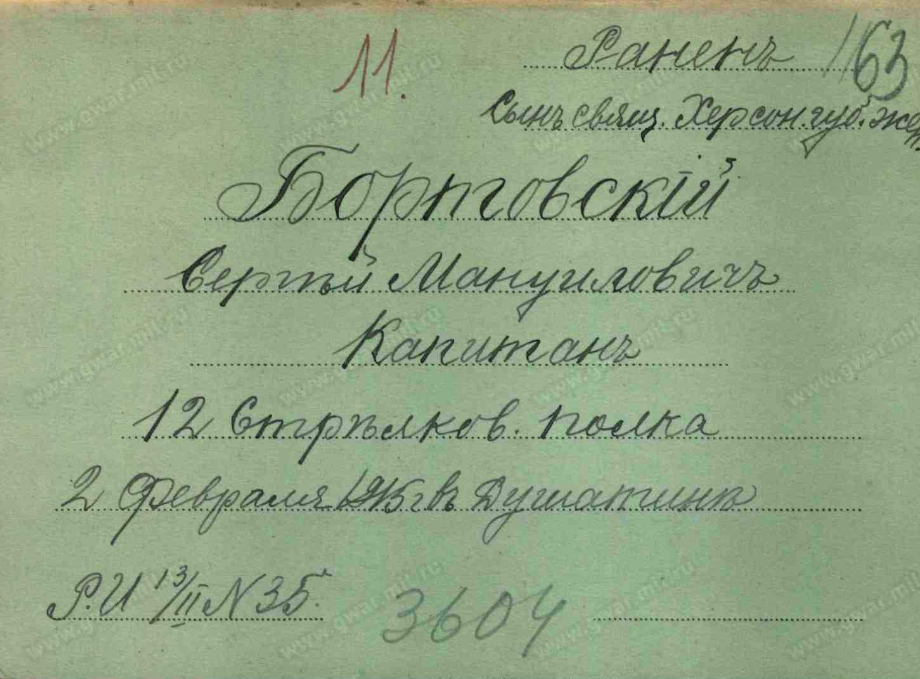 11.
Раненъ 1163
Сынъ свящ. Херсон. губ. же
Бортовскій
Сергѣй Мануиловичъ
Капитанъ
12 Стрѣлков. полка
2 Февраля 1915 г въ Душатинѣ
Р.И 13/II N 35.
3604
www.gwar.mil.ru